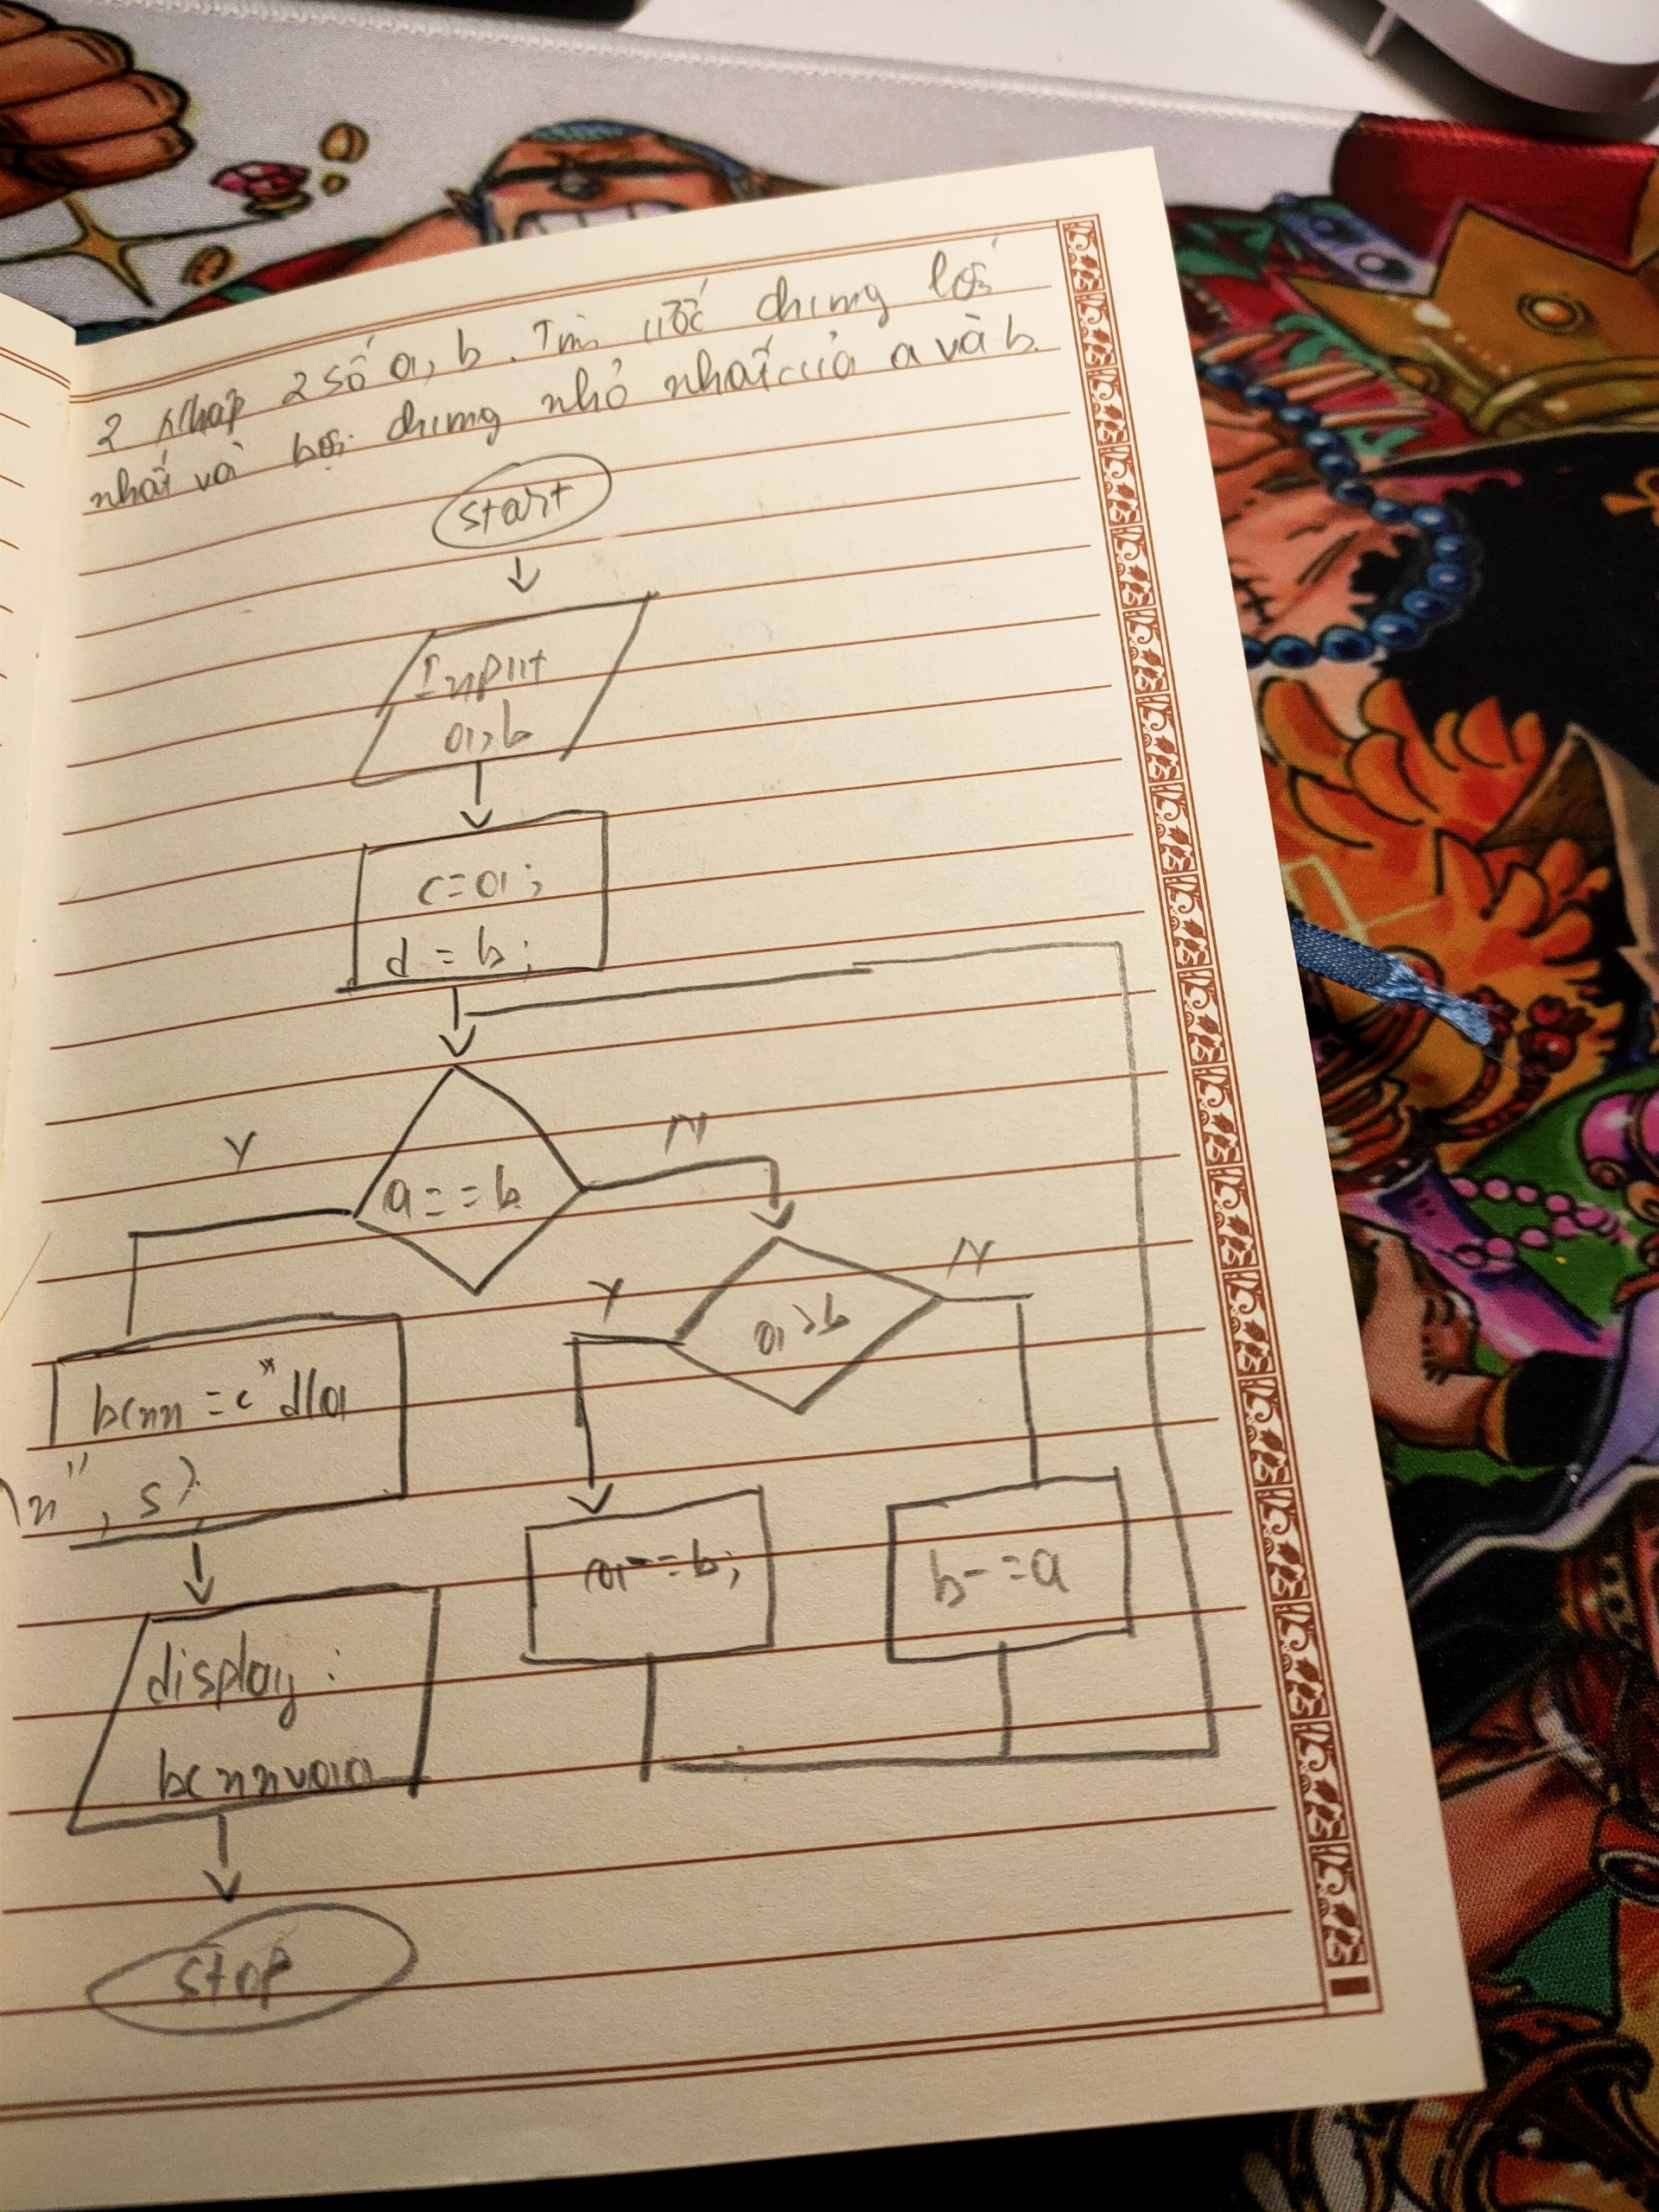 2 Nhap 2 số a, b. Tìm ước chung lớn
nhất và bội chung nhỏ nhất của a và b.
start
Input
a, b
c=a;
d = b;
Y
a==b
N
Y
a>b
N
bcnn = c*d/a
\n", s);
a-=b;
b-=a
display:
bcnn và a
stop